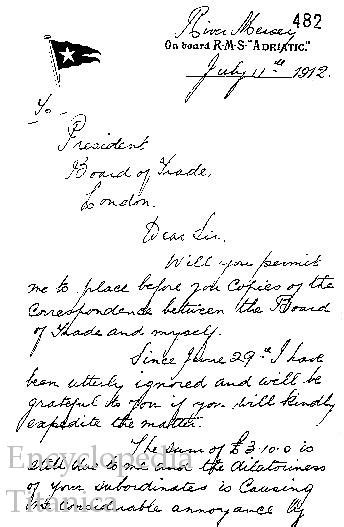 482
River Mersey
On board R·M·S· "ADRIATIC."
July 11th 1912.
To -
President
Board of Trade,
London.
Dear Sir,
Will you permit
me to place before you Copies of the
correspondence between the Board
of Trade and myself.
Since June 29th I have
been utterly ignored and will be
grateful to you if you will kindly
expedite the matter.
The sum of £3·10·0 is
still due to me and the dilatoriness
of your subordinates is Causing
me considerable annoyance by
Encyclopedia
Titanica